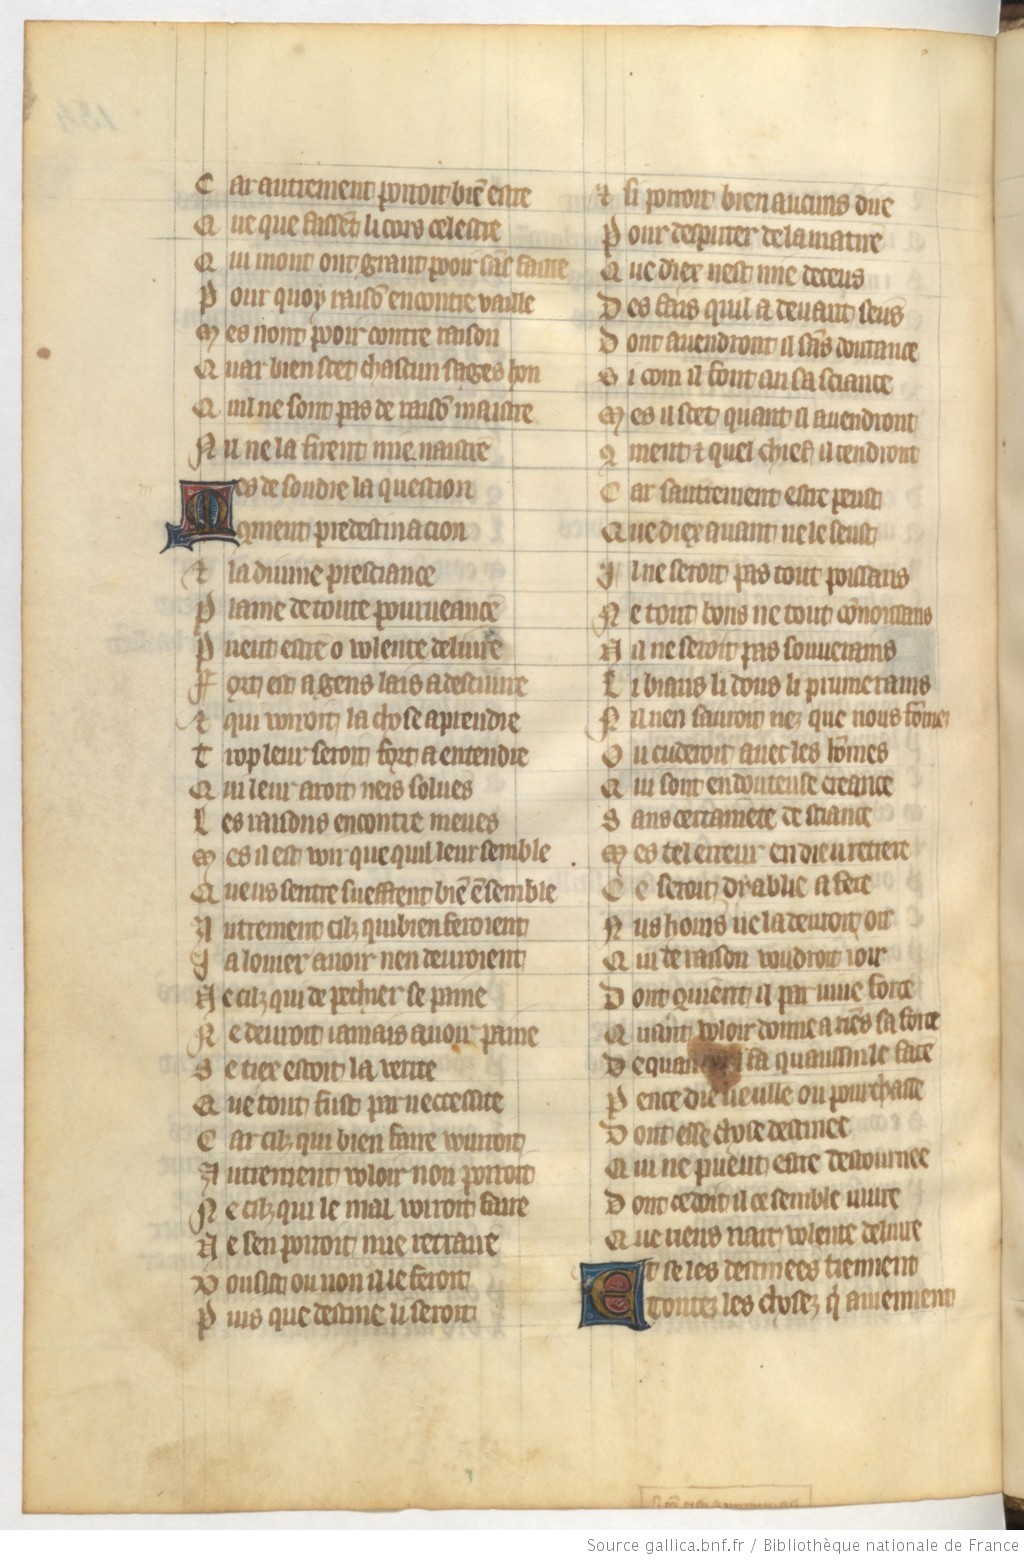 Car autrement porroit biē estre
Que que facēt li cors celestre
Qui mont ont grant pooir sās faille
Por quoy raisō encontre vaille
Mes nont pooir contre raison
Quar bien scet chascun sages hon
Quil ne sont pas de raisō maistre
Nil ne la firent mie naistre
Mes de sondre la question
9ment predestinacion
⁊ la diuine presciance
Plaine de toute pourueance
Pueut estre o volente deliure
Fort est a gens lais a descriure
⁊ qui vorroit la chose aprendre
Trop leur seroit fort a entendre
Qui leur aroit neis solues
Les raisons encontre meues
Mes il est voir que quil leur semble
Que us sentre sueffrent biē ēsemble
Autrement cilz qui bien feroient
Ja louier auoir nen deuroient
Ne cilz qui de pechier se paine
Ne deuroit iamais auoir paine
Se tiex estoit la verite
Que tout fust par neccessite
Car cilz qui bien faire vorroit
Autrement voloir non porroit
Ne cilz qui le mal vorroit faire
Ne sen porroit mie retraire
Vousist ou non il le feroit
Puis que destine li seroit
⁊ si porroit bien aucuns dire
Pour desputer de la matire
Que diex nest mie deceus
Des fais quil a deuant seus
Dont auendront il sās doutance
Si com il sont an sa sciance
Mes il scet quant il auendront
9ment ⁊ quel chief il tendront
Car sautrement estre peust
Que diex auant ne le seust
Il ne seroit pas tout poissans
Ne tout bons ne tout cōnoissans
Nil ne seroit pas souuerains
Li biaus li dous li primerains
Nil nen sauroit nez que nous fōmez
Ou cuideroit auec les hōmes
Qui sont en douteuse creance
Sans certainete de sciance
Mes tel erreur en dieu retrere
Ce seroit dyablie a fere
Nus homs ne la deuroit oir
Qui de raison voudroit ioir
Dont 9uiēt il par viue force
Quant voloir donme a riēs sa force
De quan fa quainsi le face
Pence die vueille ou pourchasse
Dont est ce chose destinee
Qui ne pueut estre destournee
Dont ce doit il ce semble suiure
Que riens nait volente deliure
Et se les destinees tiennent
Toutez les chosez q̄ auiennent
Source gallica.bnf.fr / Bibliothèque nationale de France